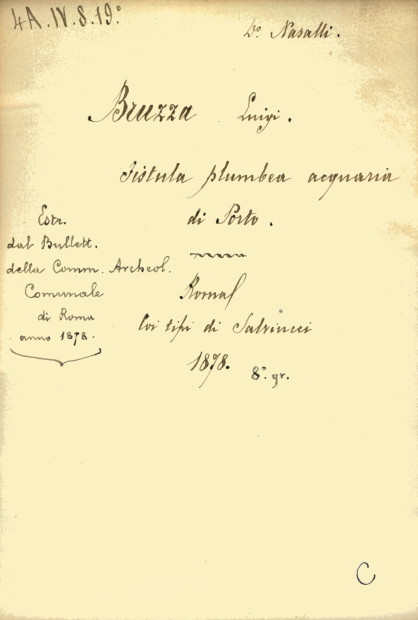 4A.IV.8.19°
D°. Nasalli.
Bruzza Luigi.
Fistula plumbea acquaria
di Porto.
Estr.
dal Bullett.
della Comm. Archeol.
Comunale
di Roma
anno 1878.
Roma
Coi tipi di Salviucci
1878. 8°. gr.
C